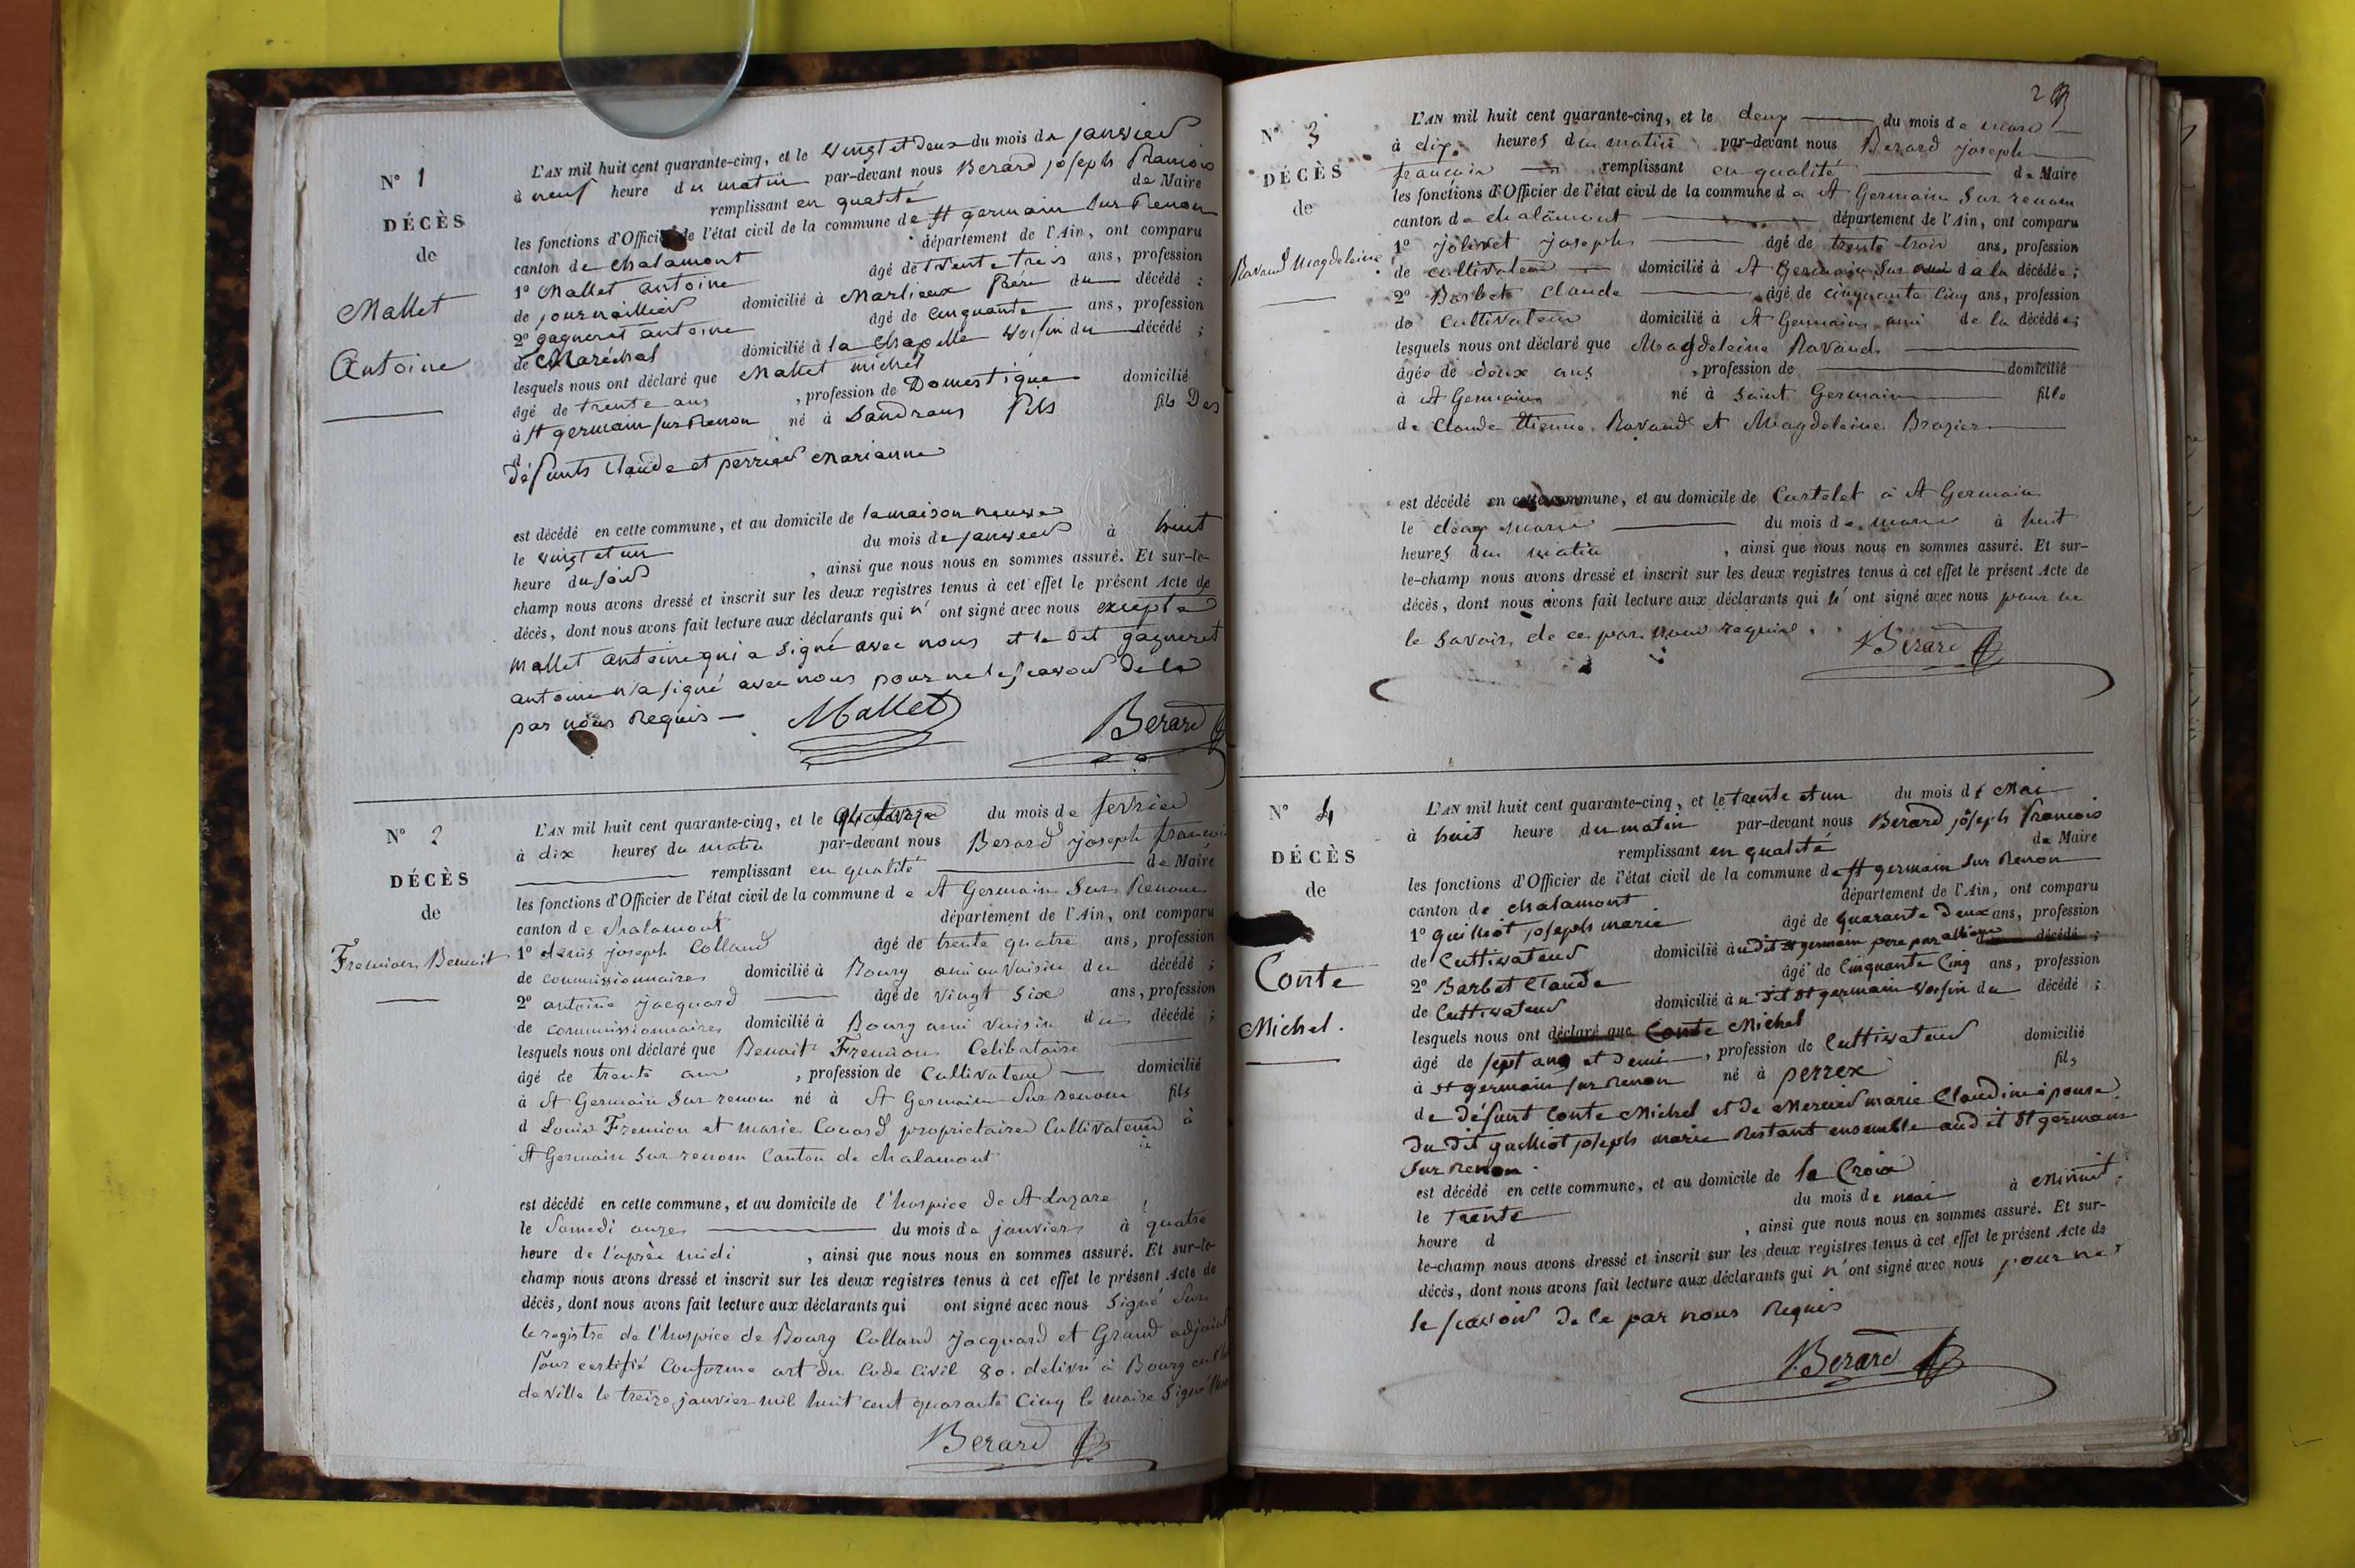 N° 1
DÉCÈS
de
Mallet
Antoine
L'AN mil huit cent quarante-cinq, et le vingt et deux du mois de janvier
à neuf heure du matin par-devant nous Berard joseph francois
remplissant en qualité de Maire
les fonctions d'Officier de l'état civil de la commune de St germain sur Renon
canton de chalamont département de l'Ain, ont comparu
1° Mallet antoine âgé de trente trois ans, profession
de journaillier domicilié à Marlieux frère du décédé ;
2° gagneret antoine âgé de cinquante ans, profession
de Maréchal domicilié à la chapelle voisin du décédé ;
lesquels nous ont déclaré que Mallet michel
âgé de trente ans , profession de Domestique domicilié
à St germain sur Renon né à Sandrans fils fils Des
d
défunts Claude et perrier Marianne
est décédé en cette commune, et au domicile de la maison neuve
le vingt et un du mois de janvier à huit
heure du soir , ainsi que nous nous en sommes assuré. Et sur-le-
champ nous avons dressé et inscrit sur les deux registres tenus à cet effet le présent Acte de
décès, dont nous avons fait lecture aux déclarants qui n' ont signé avec nous excepté
mallet antoine qui a signé avec nous et le dit gagneret
antoine n'a signé avec nous pour ne le scavoir de ce
par nous Requis — Mallet Berard
N° 2
DÉCÈS
de
Fremion Benoit
L'AN mil huit cent quarante-cinq, et le quatorze du mois de fevrier
à dix heures du matin par-devant nous Berard joseph francois
remplissant en qualité de Maire
les fonctions d'Officier de l'état civil de la commune de St Germain Sur Renom
canton de chalamont département de l'Ain, ont comparu
1° denis joseph Colland âgé de trente quatre ans, profession
de commissionnaire domicilié à Bourg ami ou voisin du décédé ;
2° antoine jacquard âgé de vingt six ans, profession
de commissionnaire domicilié à Bourg ami voisin du décédé ;
lesquels nous ont déclaré que Benoit Fremion Celibataire
âgé de trente ans , profession de Cultivateur domicilié
à St Germain Sur renom né à St Germain Sur renom fils
d Louis Fremion et marie Couard proprietaires Cultivateurs à
St Germain Sur renom Canton de chalamont
est décédé en cette commune, et au domicile de l'hospice de St Lazare
le Samedi onze du mois de janvier à quatre
heure de l'après midi , ainsi que nous nous en sommes assuré. Et sur-le-
champ nous avons dressé et inscrit sur les deux registres tenus à cet effet le présent Acte de
décès, dont nous avons fait lecture aux déclarants qui ont signé avec nous Signé Sur
le registre de l'hospice de Bourg Colland Jacquard et Grand adjoint
Pour certifié Conforme art du Code Civil 80. delivré à Bourg en l'hotel
de ville le treize janvier mil huit cent quarante Cinq le maire Signé
Berard
2
N° 3
DÉCÈS
de
Ravaud Magdeleine
L'AN mil huit cent quarante-cinq, et le deux du mois de mars
à dix heures du matin par-devant nous Berard joseph
francois remplissant en qualité de Maire
les fonctions d'Officier de l'état civil de la commune de St Germain Sur renom
canton de chalamont département de l'Ain, ont comparu
1° Jolivet joseph âgé de trente trois ans, profession
de cultivateur domicilié à St Germain Sur ami de la décédée ;
2° Barbet Claude âgé de cinquante cinq ans, profession
de Cultivateur domicilié à St Germain ami de la décédée ;
lesquels nous ont déclaré que Magdeleine Ravaud
âgée de deux ans , profession de domicilié
à St Germain né à Saint Germain fille
de Claude Etienne Ravaud et Magdeleine Brazier
est décédé en cette commune, et au domicile de Curtelet à St Germain
le deux mars du mois de mars à huit
heures du matin , ainsi que nous nous en sommes assuré. Et sur-
le-champ nous avons dressé et inscrit sur les deux registres tenus à cet effet le présent Acte de
décès, dont nous avons fait lecture aux déclarants qui n' ont signé avec nous pour ne
le Savoir, de ce par nous requis. Berard
N° 4
DÉCÈS
de
Conte
Michel.
L'AN mil huit cent quarante-cinq, et le trente et un du mois de Mai
à huit heure du matin par-devant nous Berard joseph francois
remplissant en qualité de Maire
les fonctions d'Officier de l'état civil de la commune de St germain sur Renon
canton de chalamont département de l'Ain, ont comparu
1° guilliot joseph marie âgé de quarante deux ans, profession
de Cultivateur domicilié au dit St germain pere par alliance décédé ;
2° Barbet Claude âgé de Cinquante Cinq ans, profession
de Cultivateur domicilié au dit St germain voisin du décédé ;
lesquels nous ont déclaré que Conte Michel
âgé de sept ans et demi , profession de Cultivateur domicilié
à St germain sur Renon né à perrex fils
de défunt Conte Michel et de Mercier marie Claudine épouse
du dit guilliot joseph marie Restant ensemble au dit St germain
sur Renon.
est décédé en cette commune, et au domicile de la Croix
le Trente du mois de mai à Minuit
heure d , ainsi que nous nous en sommes assuré. Et sur-
le-champ nous avons dressé et inscrit sur les deux registres tenus à cet effet le présent Acte de
décès, dont nous avons fait lecture aux déclarants qui n' ont signé avec nous pour ne
le scavoir de ce par nous Requis
Berard